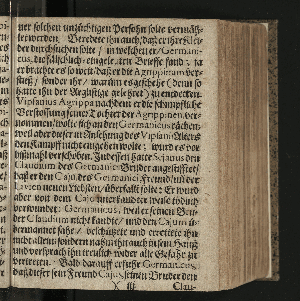 ner solchen unzüchtigen Persohn solte vermäh-
let werden. Beredete ihn auch, daß er ihre Klei-
der durchsuchen solte / in welchen er / Germani-
cus, die fälschlich-eingelegten Brieffe fand; ja
er brachte es so weit / daß er die Agrippinam ver-
stieß / sondern ihr / warum es geschehe (denn so
hatte ihn der Arglistige gelehret) zu entdecken.
Vipsanius Agrippa nachdem er die schimpfliche
Verstossung seiner Tochter der Agrippinen, ver-
nommen / wolte sich an den Germanicus rächen /
weil aber dieser in Ansehung des Vipsani Alters
den Kampff nicht eingehen wolte; wurd es vor
dißmahl verschoben. Indessen hatte Sejanus den
Claudium des Germanici Bruder angestifftet /
daß er den Cajus des Germanici Freund / mit der
Livien neuen Liebsten / überfallen solte: Er wurd
aber von dem Cajus unerkandter weise tödlich
verwundet; Germanicus, weil er seinen Bru-
der Claudium nicht kandte / und den Cajum ü-
bermannet sahe / beschützete und errettete ihn
nicht allein / sondern nahm ihn auch in sein Hauß
und versprach ihn treulich wider alle Gefahr zu
vertreten. Bald darauff erfuhr Germanicus,
daß dieser sein Freund Cajus seinen Bruder den
X iij Clau-